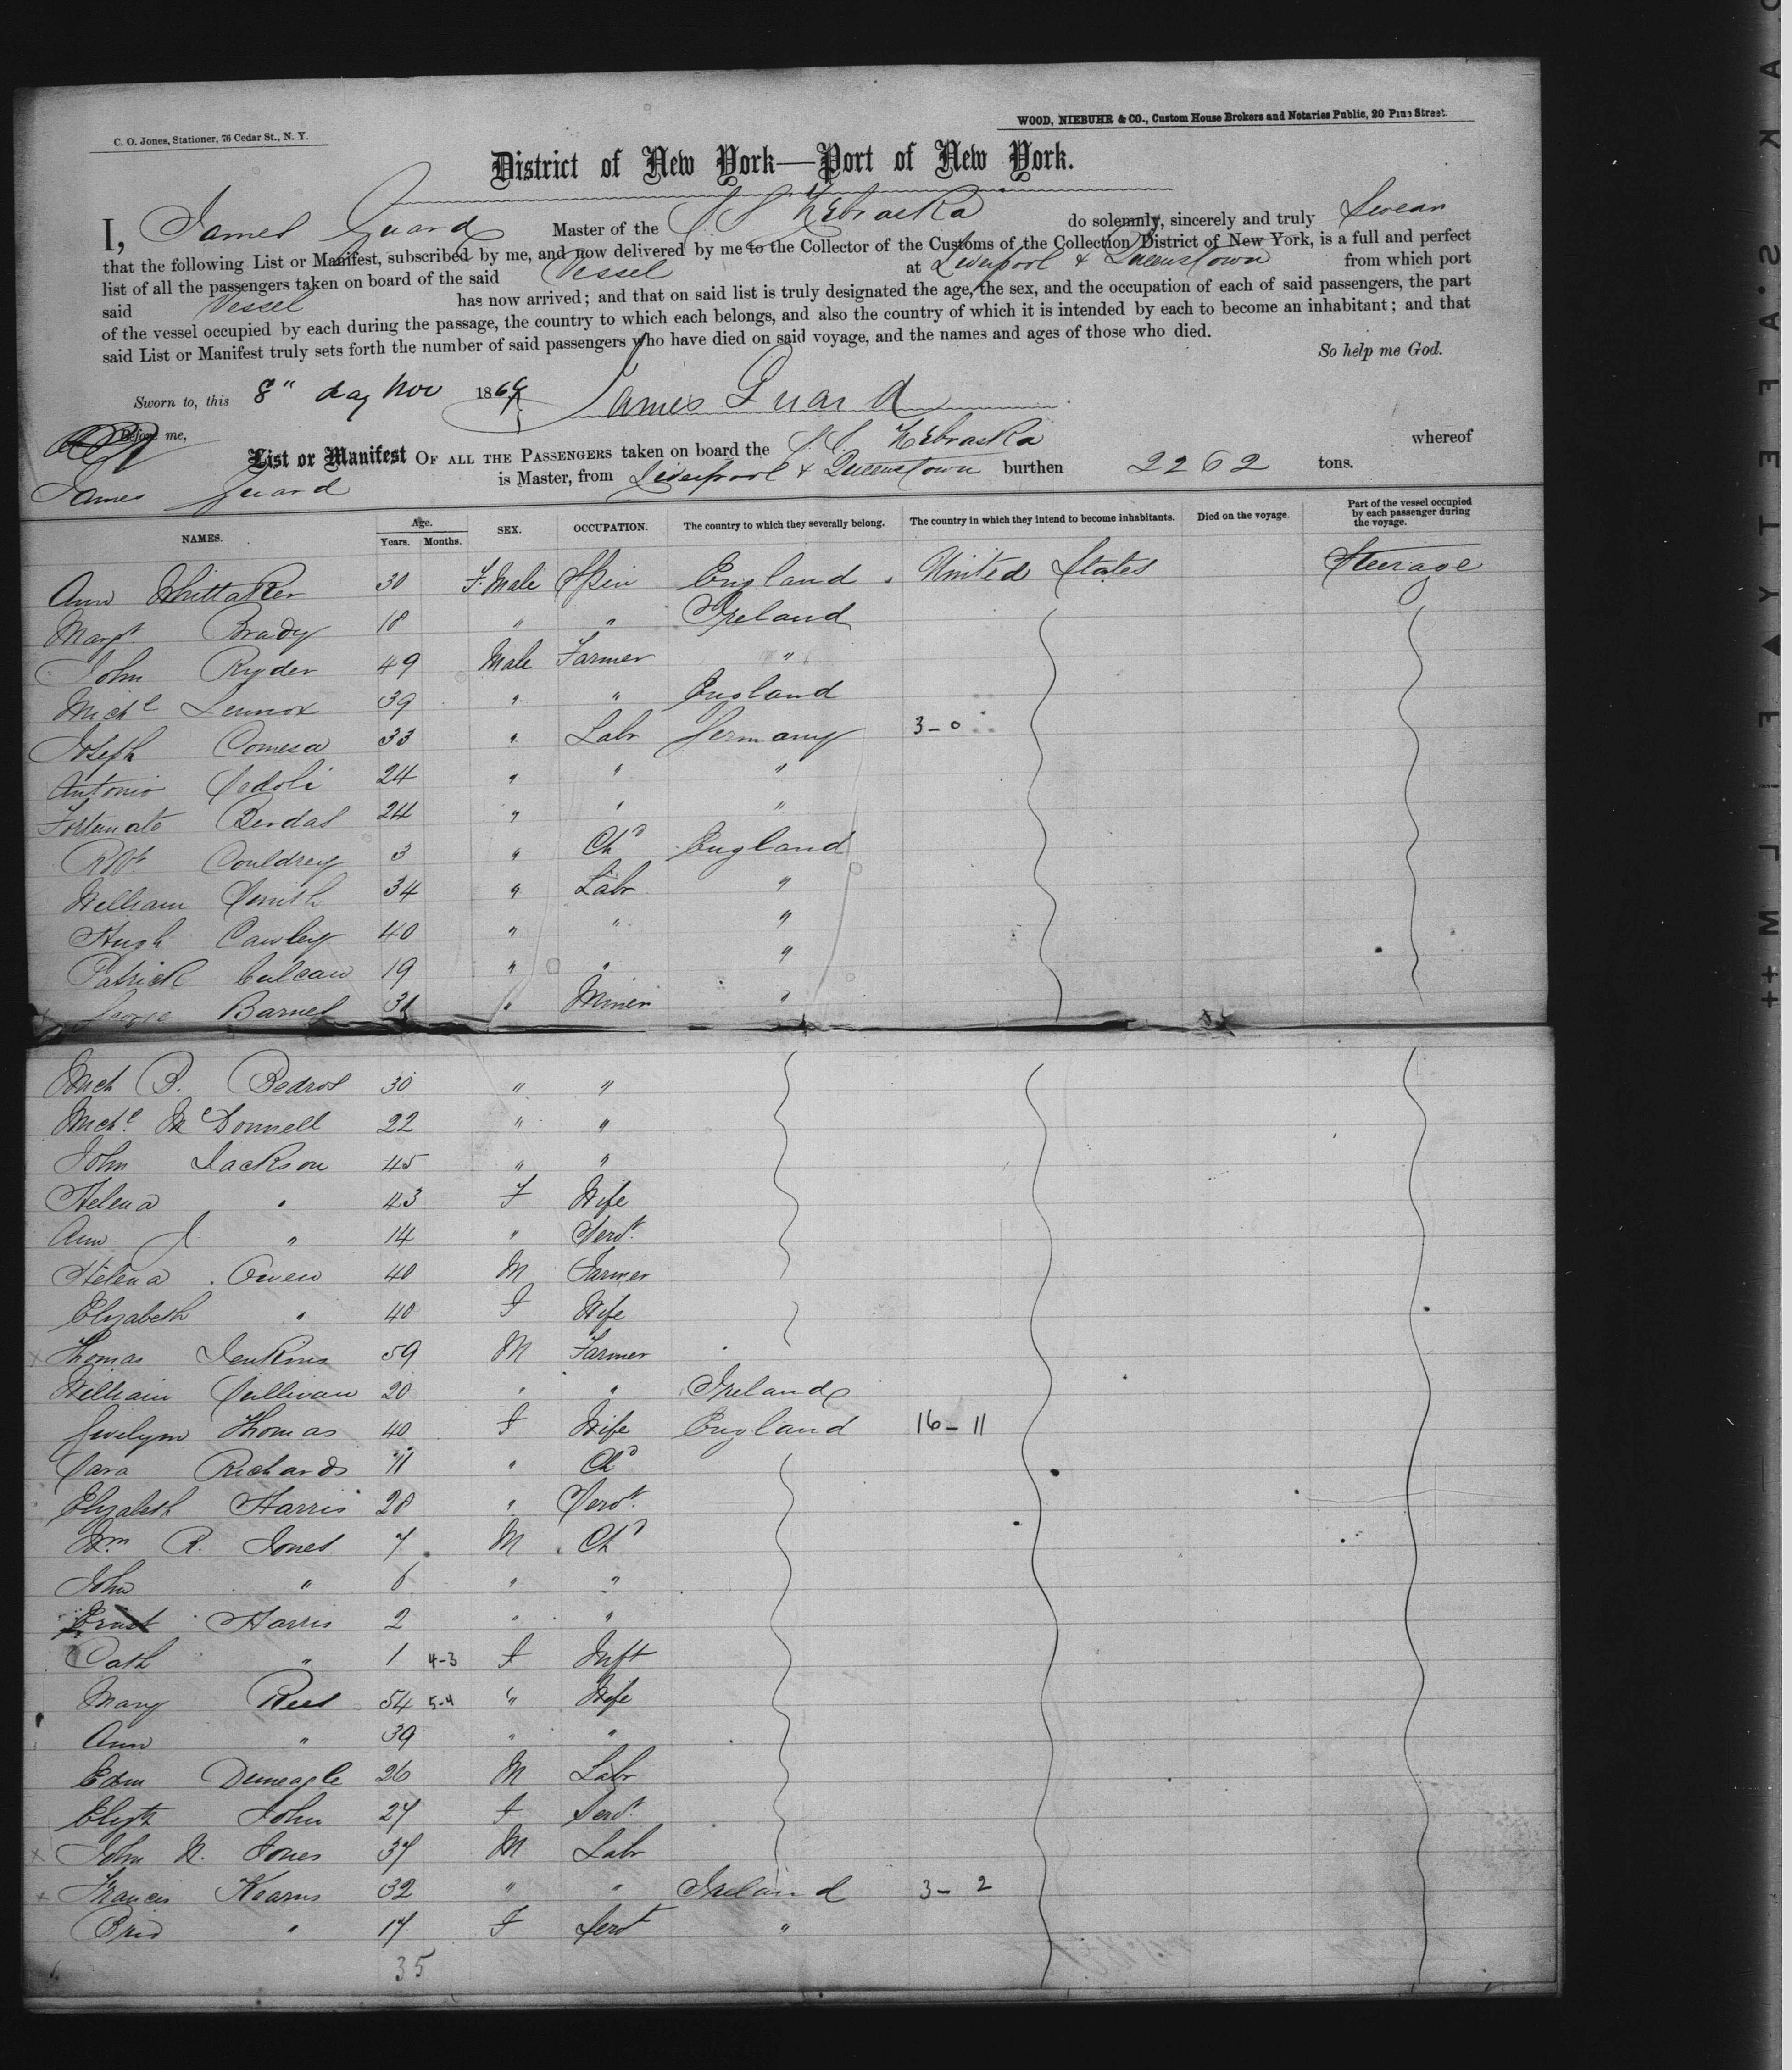 WOOD, NIEBUHR & CO., Custom House Brokers and Notaries Public, 20 Pine Street.
C. O. Jones, Stationer, 76 Cedar St., N. Y.
District of New York—Port of New York.
I, James Guard Master of the S S Nebraska do solemnly, sincerely and truly Swear
that the following List or Manifest, subscribed by me, and now delivered by me to the Collector of the Customs of the Collection District of New York, is a full and perfect
list of all the passengers taken on board of the said Vessel at Liverpool & Queenstown from which port
said Vessel has now arrived; and that on said list is truly designated the age, the sex, and the occupation of each of said passengers, the part
of the vessel occupied by each during the passage, the country to which each belongs, and also the country of which it is intended by each to become an inhabitant; and that
said List or Manifest truly sets forth the number of said passengers who have died on said voyage, and the names and ages of those who died.
So help me God.
Sworn to, this 8" day Nov 1869 James Guard
Before me,
List or Manifest OF ALL THE PASSENGERS taken on board the S S Nebraska whereof
James Guard is Master, from Liverpool & Queenstown burthen 2262 tons.
NAMES. Age. Years. Months. SEX. OCCUPATION. The country to which they severally belong. The country in which they intend to become inhabitants. Died on the voyage. Part of the vessel occupied by each passenger during the voyage.
Ann Whittaker 30 F. Male Spin England United States Steerage
Margt Brady 18 " " Ireland
John Ryder 49 Male Farmer "
Michl Lennox 39 " " England
Joseph Comesa 33 " Labr Germany 3-0
Antonio Sedoli 24 " " "
Fortunato Berdas 24 " " "
Robt Couldrey 3 " Chd England
William Smith 34 " Labr "
Hugh Cawley 40 " " "
Patrick Culcan 19 " " "
George Barnes 31 " Miner "
Mich B. Bedros 30 " "
Michl McDonnell 22 " "
John Jackson 45 " "
Helena " 43 F Wife
Ann J " 14 " Servt
Helena Owen 40 M Farmer
Elizabeth " 40 F Wife
Thomas Jenkins 59 M Farmer
William Sullivan 20 " " Ireland
Gwilym Thomas 40 F Wife England 16-11
Sara Richards 11 " Chd
Elizabeth Harris 28 " Servt
Wm R. Jones 7 M Chd
John " 6 " "
Ernst Harris 2 " "
Cath " 1 4-3 F Inft
Mary Rees 54 5-4 " Wife
Ann " 39 " "
Edm Demeagle 26 M Labr
Elizth John 27 F Servt
John N. Jones 37 M Labr
Francis Kearns 32 " " Ireland 3-2
Brid " 17 F Servt "
35